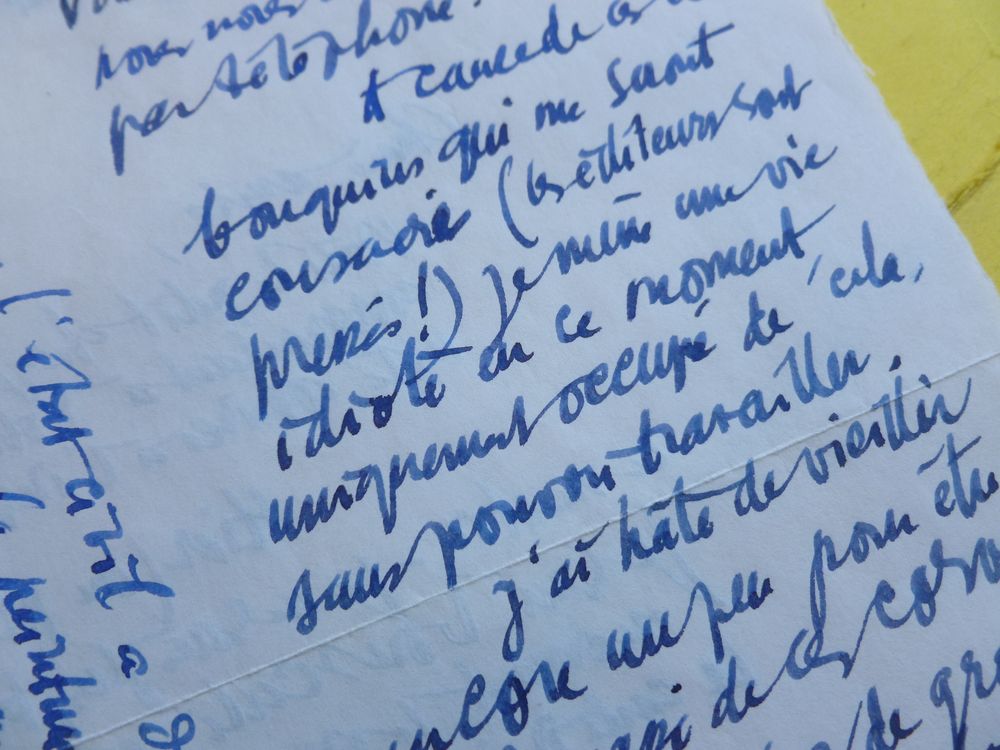 nous
par téléphone.
à cause de ces
bouquins qui me seront
consacrés (les éditeurs sont
pressés!) Je mène une vie
idiote en ce moment,
uniquement occupé de cela,
sans pouvoir travailler.
j'ai hâte de vieillir
encore un peu pour être
de ces
de
l'état civil a